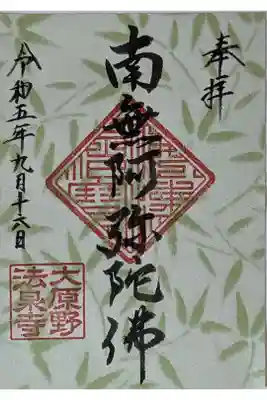 奉拝
南無阿弥陀佛
令和五年九月十六日
大原野
法泉寺